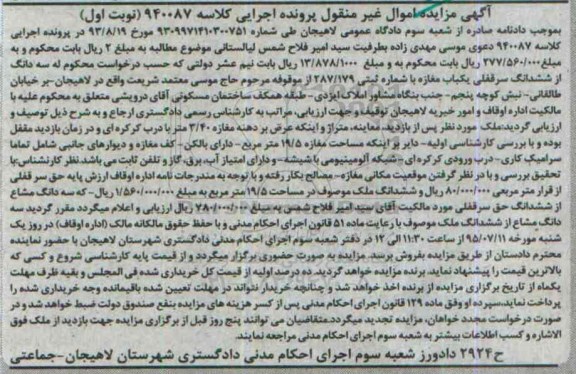 آگهی مزایده اموال غیر منقول پرونده اجرایی کلاسه ۹۴۰۰۸۷ (نوبت اول)
بموجب دادنامه صادره از شعبه سوم دادگاه عمومی لاهیجان طی شماره ۹۳۰۹۹۷۱۴۱۰۳۰۰۷۵۱ مورخ ۹۳/۸/۱۹ در پرونده اجرایی
کلاسه ۹۴۰۰۸۷ دعوی موسی مهدی زاده بطرفیت سید امیر فلاح شمس لیالستانی موضوع مطالبه به مبلغ ۲ ریال بابت محکوم و به
مبلغ ۲۷۷/۵۶۰/۰۰۰ ریال بابت محکوم به و مبلغ ۱۳/۸۷۸/۱۰۰۰ ریال بابت نیم عشر دولتی که حسب درخواست محکوم له سه دانگ
از ششدانگ سرقفلی یکباب مغازه با شماره ثبتی ۲۸۷/۱۷۹ از موقوفه مرحوم حاج موسی معتمد شریعت واقع در لاهیجان-بر خیابان
طالقانی- نبش کوچه پنجم- جنب بنگاه مشاور املاک ایزدی- طبقه همکف ساختمان مسکونی آقای درویشی متعلق به محکوم علیه با
مالکیت اداره اوقاف و امور خیریه لاهیجان توقیف و جهت ارزیابی، مراتب به کارشناس رسمی دادگستری ارجاع و به شرح ذیل توصیف و
ارزیابی گردید.ملک مورد نظر پس از بازدید، معاینه، متراژ و اینکه عرض بر دهنه مغازه ۳/۴۰ متر با درب کرکره ای و در زمان بازدید مقفل
بوده و با بررسی کارشناسی اولیه- دایر بر اینکه مساحت مغازه ۱۹/۵ متر مربع - دارای بالکن- کف مغازه و دیوارهای جانبی شامل تماما
سرامیک کاری- درب ورودی کرکره ای- شبکه آلومینیومی با شیشه- و دارای امتیاز آب، برق، گاز و تلفن ثابت می باشد.نظر کارشناس:با
تحقیق بررسی و با در نظر گرفتن موقعیت مکانی مغازه- مصالح بکار رفته و با توجه به مندرجات نامه اداره اوقاف ارزش پایه حق سر قفلی
از قرار متر مربعی ۸۰/۰۰۰/۰۰۰ ریال و ششدانگ ملک موصوف در مساحت ۱۹/۵ متر مربع به مبلغ ۱/۵۶۰/۰۰۰/۰۰۰ ریال- که سه دانگ مشاع
از ششدانگ حق سرقفلی مورد مالکیت آقای سید امیر فلاح شمس به مبلغ ۲۸۰/۰۰۰/۰۰۰ ریال ارزیابی و اعلام میگردد مقرر گردید سه
دانگ مشاع از ششدانگ ملک موصوف با رعایت ماده ۵۱ قانون اجرای احکام مدنی و با حفظ حقوق مالکانه مالک (اداره اوقاف) در روز یک
شنبه مورخه ۹۵/۰۷/۱۱ از ساعت ۱۱:۳۰ الی ۱۲ در دفتر شعبه سوم اجرای احکام مدنی دادگستری شهرستان لاهیجان با حضور نماینده
محترم دادستان از طریق مزایده بفروش برسد. مزایده به صورت حضوری برگزار میگردد و از قیمت پایه کارشناسی شروع و کسی که
بالاترین قیمت را پیشنهاد نماید، برنده مزایده خواهد گردید. ده درصد اولیه از قیمت کل خریداری شده فی المجلس و بقیه ظرف مهلت
یکماه از تاریخ برگزاری مزایده از برنده اخذ خواهد شد و چنانچه خریدار نتواند در مهلت تعیین شده باقیمانده وجه خریداری شده را
پرداخت نماید،سپرده او وفق ماده ۱۲۹ قانون اجرای احکام مدنی پس از کسر هزینه های مزایده بنفع صندوق دولت ضبط خواهد شد و در
صورت درخواست مجدد خواهان، مزایده تجدید میگردد.متقاضیان می توانند پنج روز قبل از برگزاری مزایده جهت بازدید از ملک فوق
الاشاره و کسب اطلاعات بیشتر به شعبه سوم اجرای احکام مدنی مراجعه نمایند.
ح۲۹۲۴ دادورز شعبه سوم اجرای احکام مدنی دادگستری شهرستان لاهیجان-جماعتی